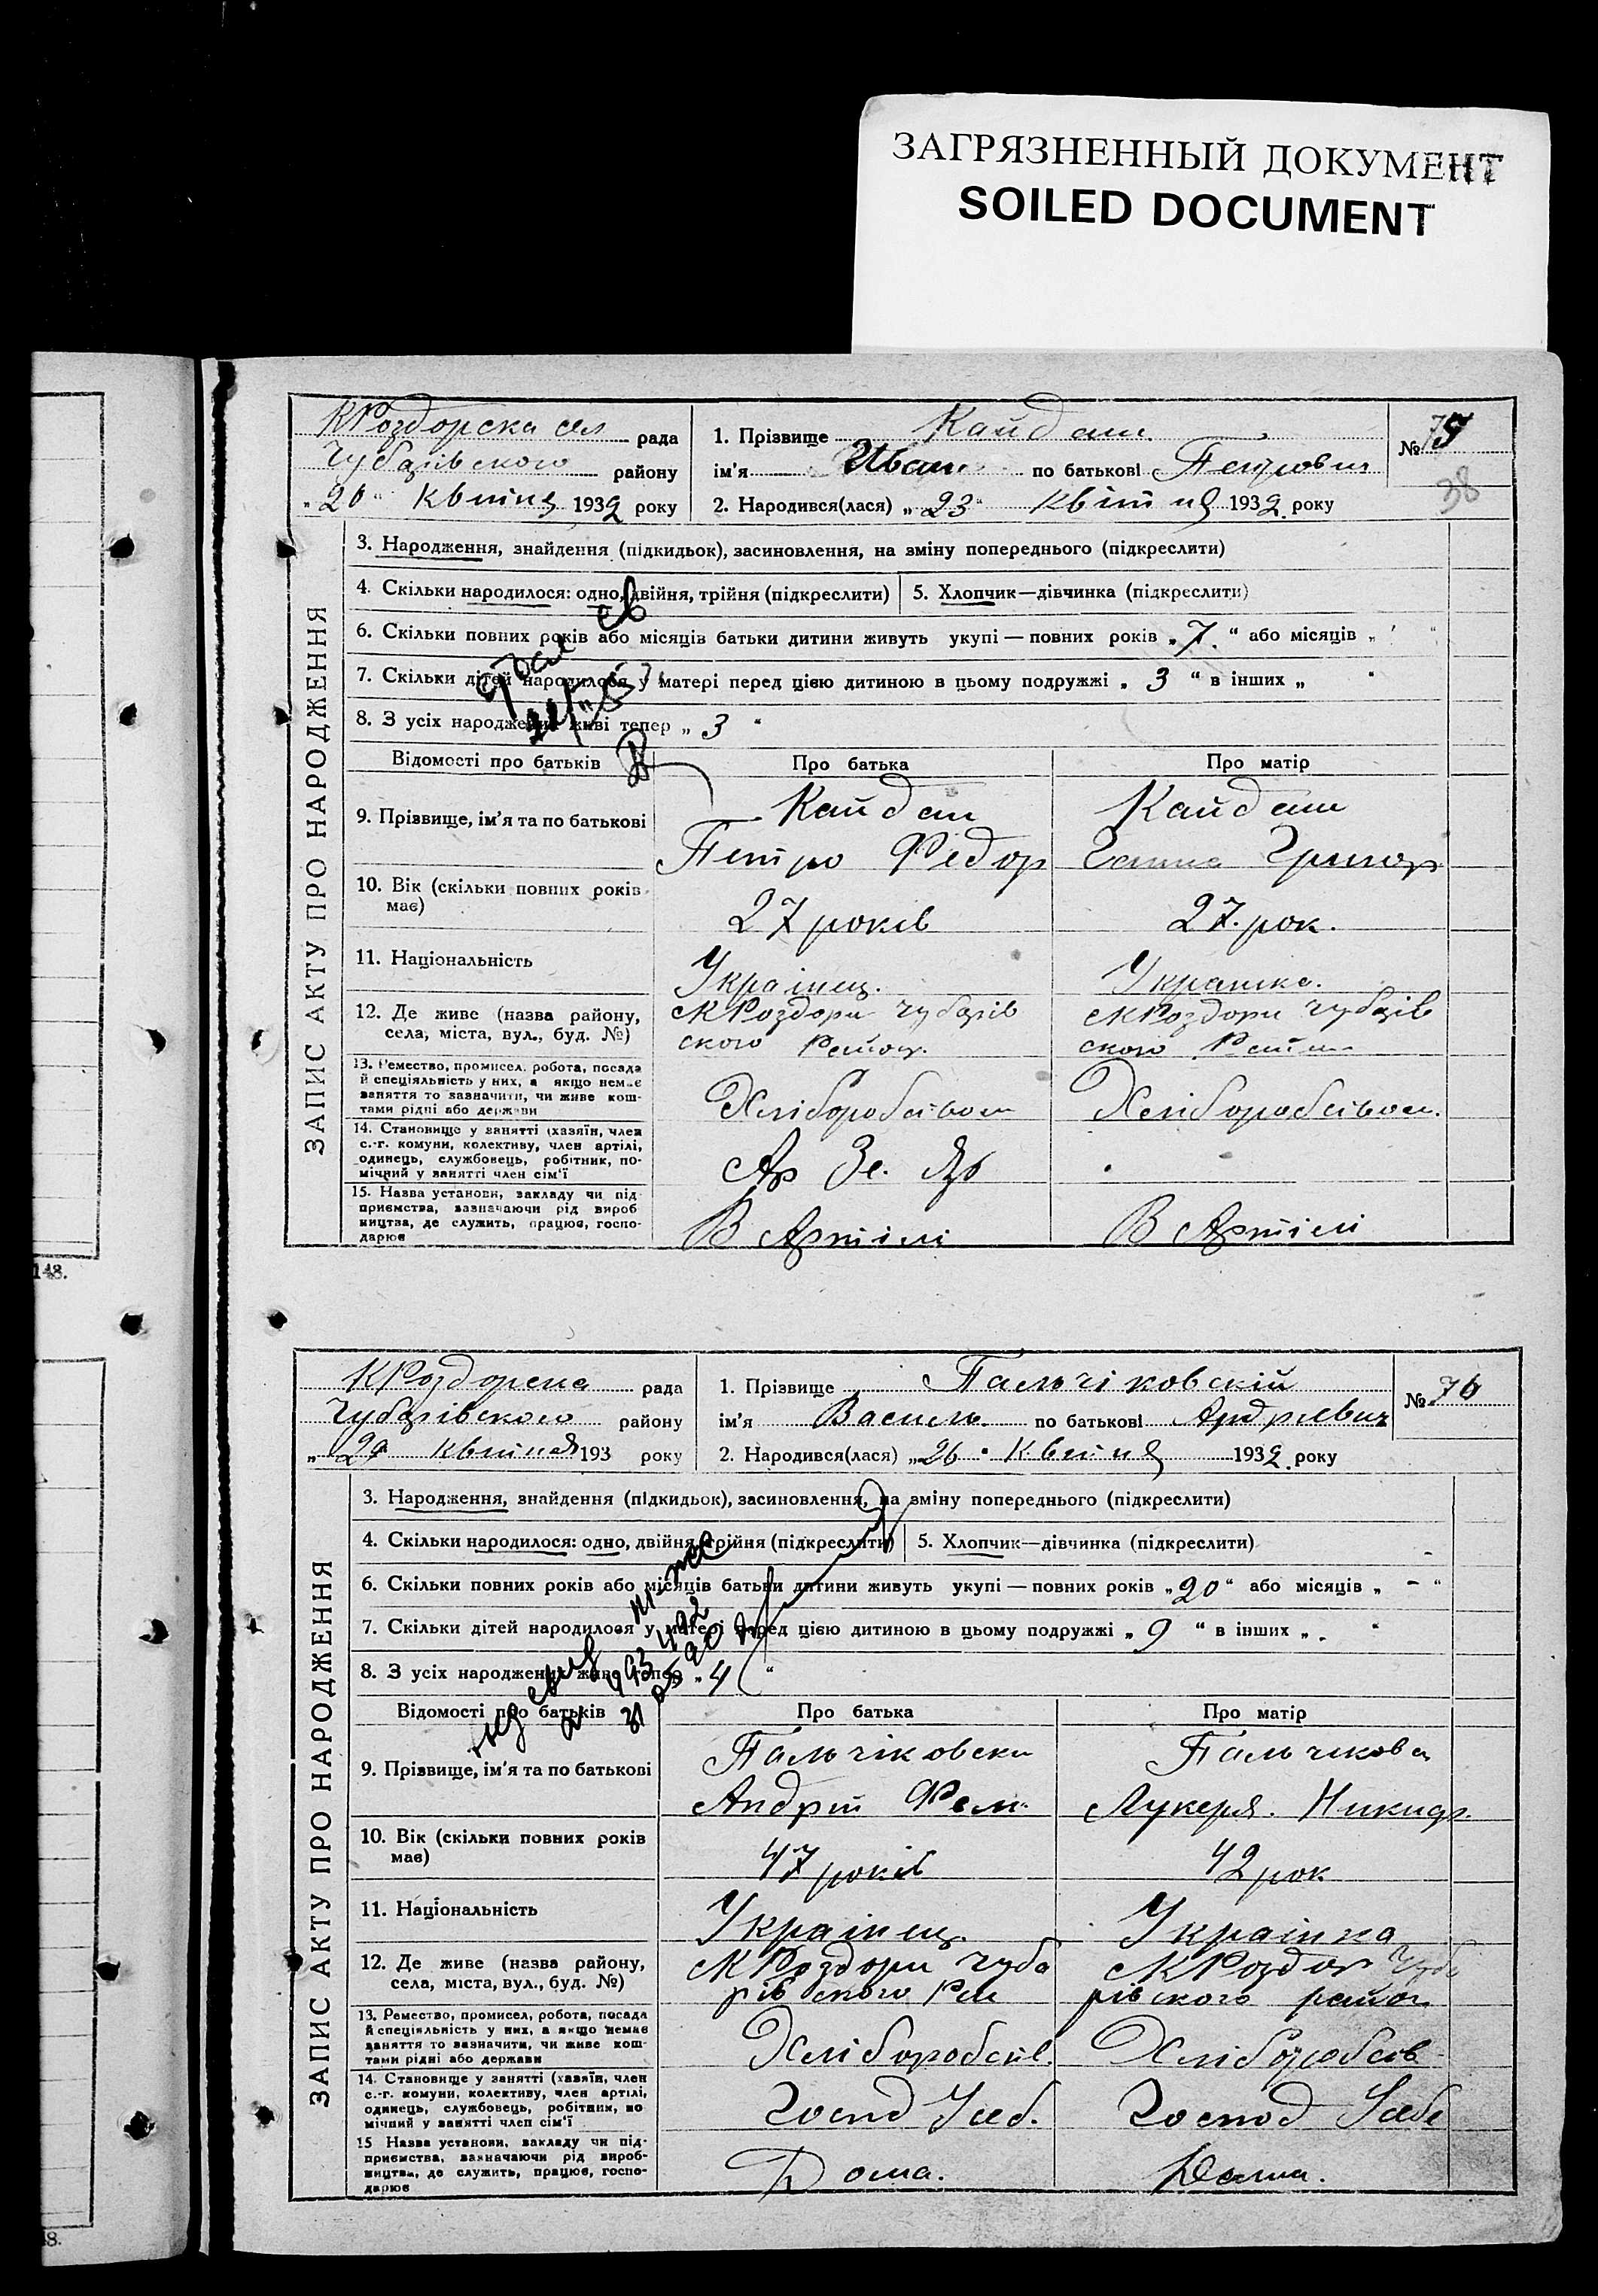 ЗАГРЯЗНЕННЫЙ ДОКУМЕНТ
SOILED DOCUMENT
КРоздорска сел рада
Чубарівського району
1. Прізвище Кайдаш
ім'я Иван по батькові Петрович
№ 75
38
квітня 1932 року
2. Народився(лася) „23“ квітня 1932 року
ЗАПИС АКТУ ПРО НАРОДЖЕННЯ
3. Народження, знайдення (підкидьок), засиновлення, на зміну попереднього (підкреслити)
4. Скільки народилося: одно, двійня, трійня (підкреслити)
5. Хлопчик—дівчинка (підкреслити)
6. Скільки повних років або місяців батьки дитини живуть укупі — повних років „7“ або місяців „ “
7. Скільки дітей народилося у матері перед цією дитиною в цьому подружжі „3“ в інших „ “
8. З усіх народжених живі тепер „3“
Відомості про батьків Про батька Про матір
9. Прізвище, ім'я та по батькові
Кайдаш Кайдаш
Петро Федор Ганна Григор
10. Вік (скільки повних років має)
27 років 27 рок.
11. Національність
Українец. Украінка.
12. Де живе (назва району, села, міста, вул., буд. №)
с КРоздори Чубарів с КРоздори Чубарів
ского Район ского Район
13. Ремество, промисел, робота, посада
й спеціяльність у них, а якщо немає
заняття то зазначити, чи живе кош-
тами рідні або держави
Хліборобством Хліборобством.
14. Становище у занятті (хазяїн, член
с.-г. комуни, колективу, член артілі,
одинець, службовець, робітник, по-
мічний у занятті член сім'ї
15. Назва установи, закладу чи під-
приємства, зазначаючи рід вироб
ництва, де служить, працює, госпо-
дарює
В Артілі В Артілі
148.
КРоздорска рада
Чубарівського району
1. Прізвище Пальчіковскій
ім'я Василь по батькові Андрієвич
№ 76
квітня 193 року
2. Народився(лася) „26“ квітня 1932 року
ЗАПИС АКТУ ПРО НАРОДЖЕННЯ
3. Народження, знайдення (підкидьок), засиновлення, на зміну попереднього (підкреслити)
4. Скільки народилося: одно, двійня, трійня (підкреслити)
5. Хлопчик—дівчинка (підкреслити)
6. Скільки повних років або місяців батьки дитини живуть укупі — повних років „20“ або місяців „ - “
7. Скільки дітей народилося у матері перед цією дитиною в цьому подружжі „9“ в інших „ “
8. З усіх народжених живі тепер „4“
Відомості про батьків Про батька Про матір
9. Прізвище, ім'я та по батькові
Пальчіковски Пальчикова
Андрій Лукеря. Никиф.
10. Вік (скільки повних років має)
47 років 42 рок
11. Національність
Українец Українка
12. Де живе (назва району, села, міста, вул., буд. №)
с КРоздори Чуба с КРоздор Чуба
рівского Рай рівского район
13. Ремество, промисел, робота, посада
й спеціяльність у них, а якщо немає
заняття то зазначити, чи живе кош-
тами рідні або держави
Хліборобств. Хліборобств
14. Становище у занятті (хазяїн, член
с.-г. комуни, колективу, член артілі,
одинець, службовець, робітник, по
мічний у занятті член сім'ї
Госпд Усеб. Господ Усебе
15 Назва установи, закладу чи під-
приємства, зазначаючи рід вироб-
ництва, де служить, працює, госпо-
дарює
Дома. Дома.